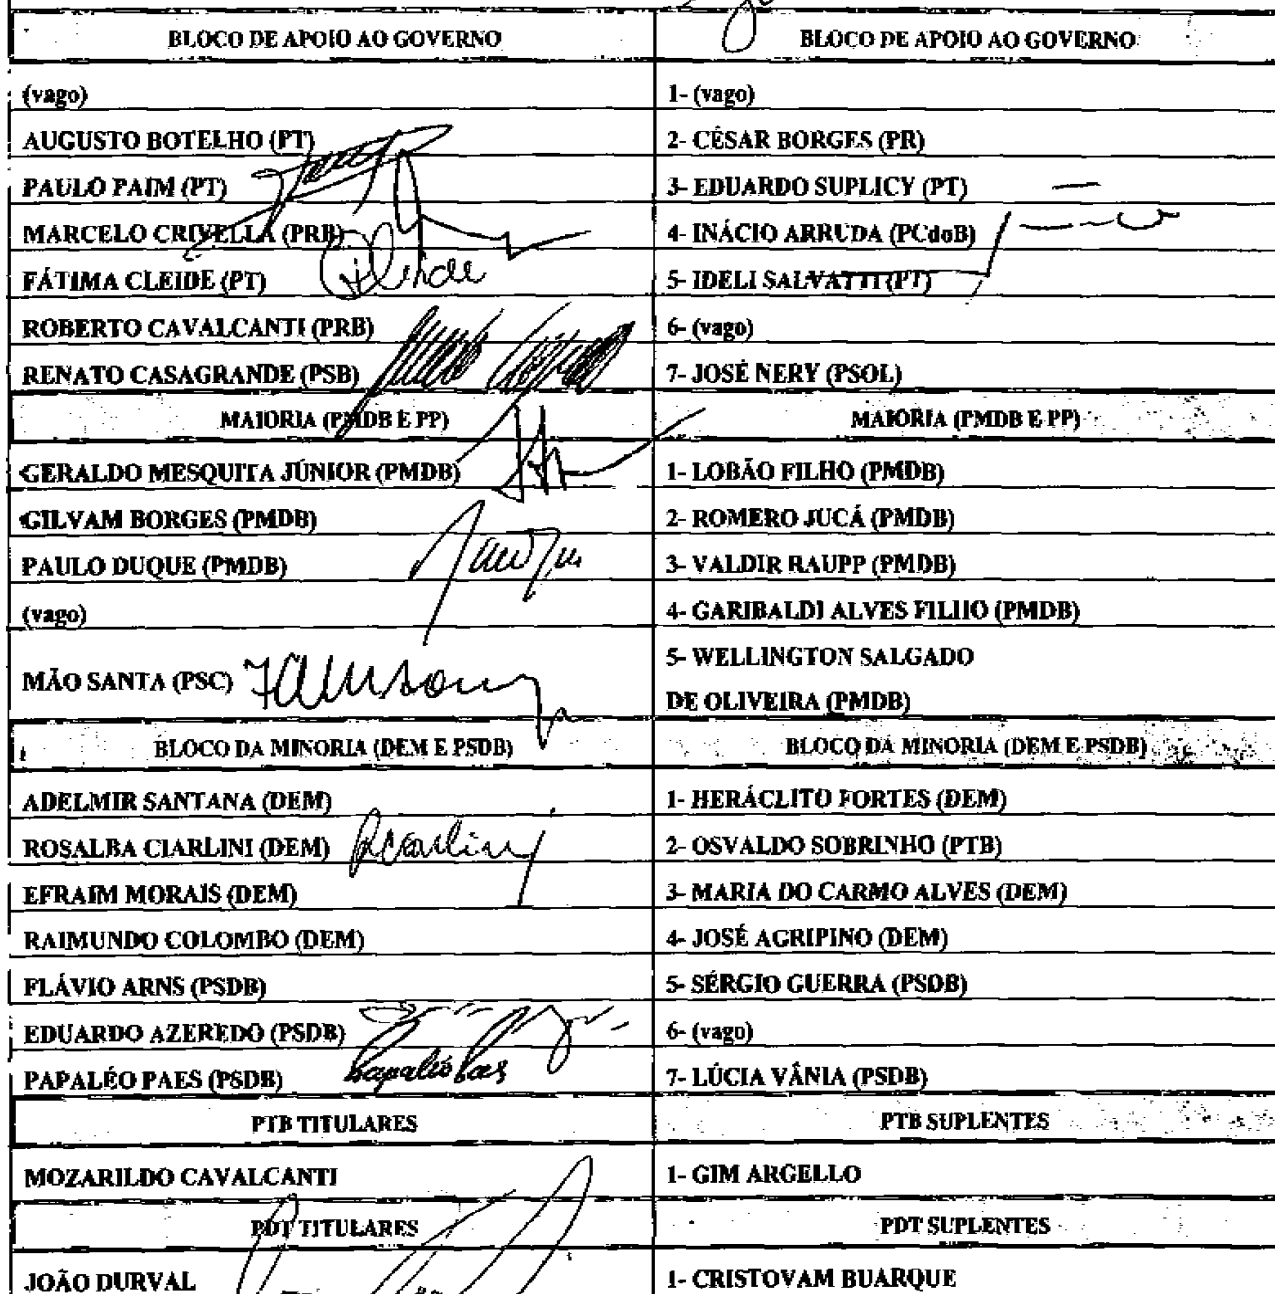 BLOCO DE APOIO AO GOVERNO
BLOCO DE APOIO AO GOVERNO
(vago)
1- (vago)
AUGUSTO BOTELHO (PT)
2- CÉSAR BORGES (PR)
PAULO PAIM (PT)
3- EDUARDO SUPLICY (PT)
MARCELO CRIVELLA (PRB)
4- INÁCIO ARRUDA (PCdoB)
FÁTIMA CLEIDE (PT)
5- IDELI SALVATTI (PT)
ROBERTO CAVALCANTI (PRB)
6- (vago)
RENATO CASAGRANDE (PSB)
7- JOSÉ NERY (PSOL)
MAIORIA (PMDB E PP)
MAIORIA (PMDB E PP)
GERALDO MESQUITA JÚNIOR (PMDB)
1- LOBÃO FILHO (PMDB)
GILVAM BORGES (PMDB)
2- ROMERO JUCÁ (PMDB)
PAULO DUQUE (PMDB)
3- VALDIR RAUPP (PMDB)
(vago)
4- GARIBALDI ALVES FILHO (PMDB)
MÃO SANTA (PSC)
5- WELLINGTON SALGADO
DE OLIVEIRA (PMDB)
BLOCO DA MINORIA (DEM E PSDB)
BLOCO DA MINORIA (DEM E PSDB)
ADELMIR SANTANA (DEM)
1- HERÁCLITO FORTES (DEM)
ROSALBA CIARLINI (DEM)
2- OSVALDO SOBRINHO (PTB)
EFRAIM MORAIS (DEM)
3- MARIA DO CARMO ALVES (DEM)
RAIMUNDO COLOMBO (DEM)
4- JOSÉ AGRIPINO (DEM)
FLÁVIO ARNS (PSDB)
5- SÉRGIO GUERRA (PSDB)
EDUARDO AZEREDO (PSDB)
6- (vago)
PAPALÉO PAES (PSDB) Papaléo Paes
7- LÚCIA VÂNIA (PSDB)
PTB TITULARES
PTB SUPLENTES
MOZARILDO CAVALCANTI
1- GIM ARGELLO
PDT TITULARES
PDT SUPLENTES
JOÃO DURVAL
1- CRISTOVAM BUARQUE